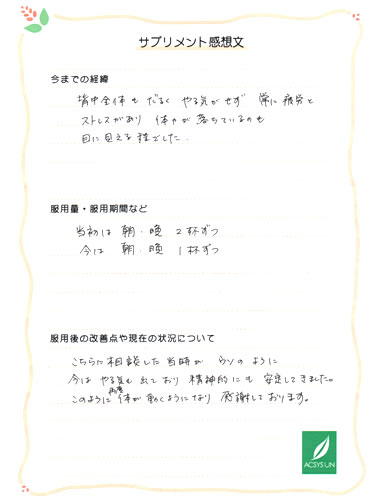 サプリメント感想文
今までの経緯
背中全体もだるく やる気がせず 常に疲労と
ストレスがあり 体力が落ちているのも
目に見える程でした.
服用量・服用期間など
当初は 朝・晩 2杯ずつ
今は 朝・晩 1杯ずつ
服用後の改善点や現在の状況について
こちらに相談した当時が ウソのように
今は やる気も出ており 精神的にも 安定してきました。
このように 体が動くようになり 感謝しております。
ACSYS UN